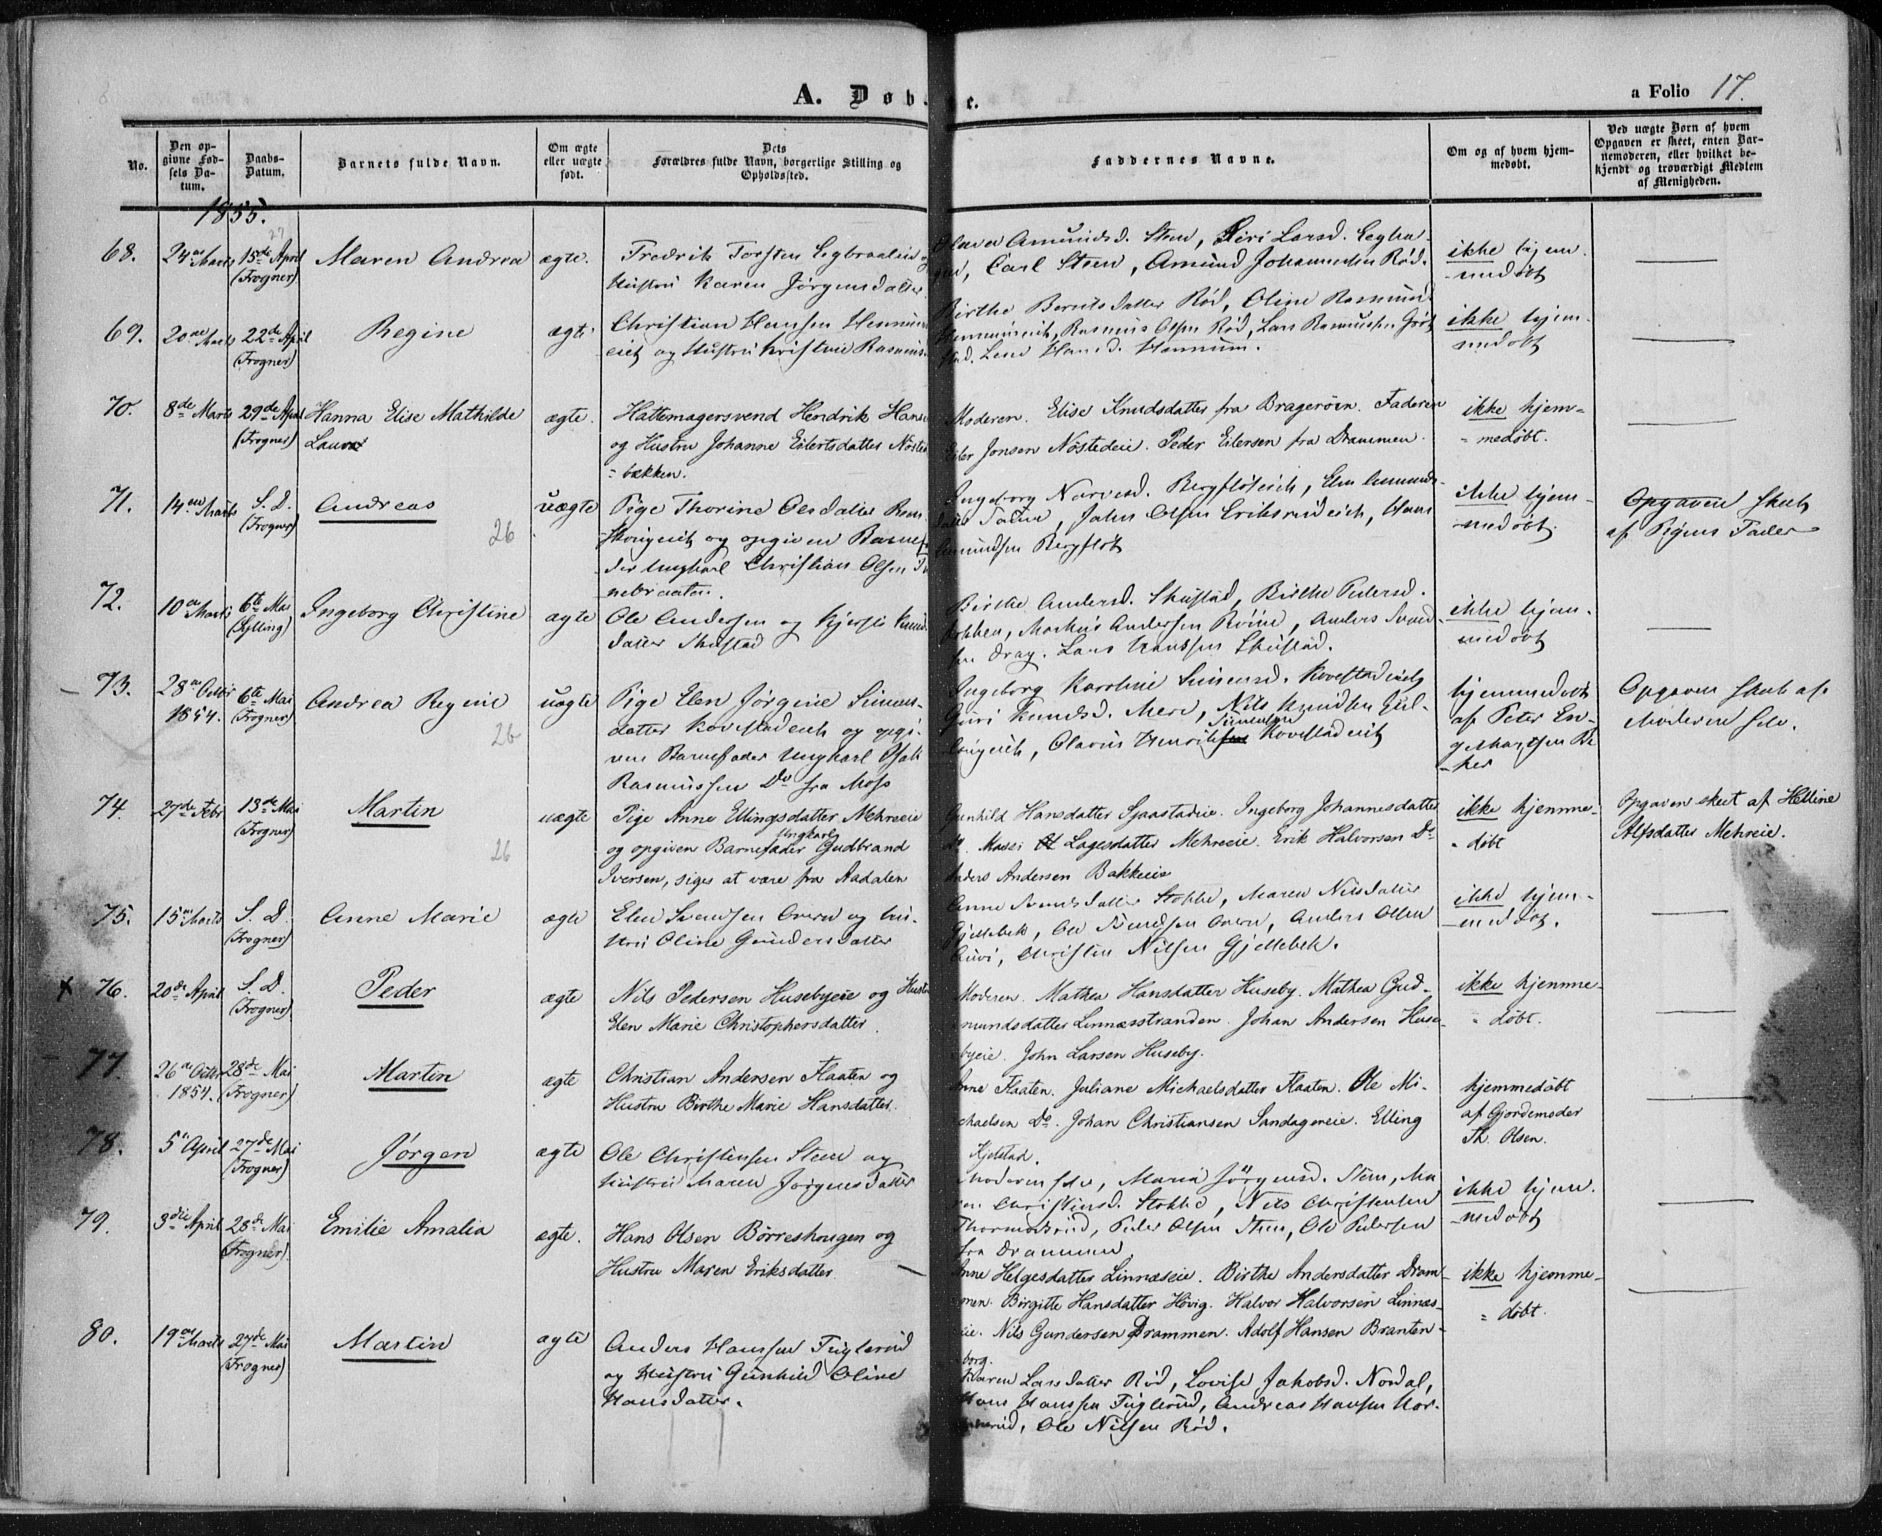 A. Døb e.
a Folio 17.
No.
Den opgivne Fødsels Datum.
Daabs-Datum.
Barnets fulde Navn.
Om ægte eller uægte født.
Dets Forældres fulde Navn, borgerlige Stilling og Opholdssted.
Faddernes Navne.
Om og af hvem hjemmedøbt.
Ved uægte Børn af hvem Opgaven er skeet, enten Barnemoderen, eller hvilket bekjendt og troværdigt Medlem af Menigheden.
1855.
68. 24de Marts 15de April (Frogner) Maren Andrea ægte.
Fredrik Torsten og
Hustru Karen Jørgensdatter
Amundsd. Steen, Siri Larsd.
Carl Steen, Amund Johannesen Rød.
ikke hjem-
medøbt
69. 20de Marts 22de April (Frogner) Regine ægte
Christian Hansen
eiet og Hustru Kristine Rasmus
Birthe Berntsdatter Rød, Oline Rasmusd.
Rasmus Olsen Rød, Lars Rasmussen
Hansd. Hennum.
ikke hjem-
medøbt
70. 8de Marts 29de April (Frogner) Hanna Elise Mathilde
Laura
ægte.
Hattemagersvend Hendrik Hans
og Hustru Johanne Eilertsdatter Nøste
=bækken.
Moderen. Elise Knudsdatter fra Bragerøen. Faderen
Eiler Jonsen Nøstedeie. Peder Eilersen fra Drammen.
ikke hjem=
=medøbt.
71. 14de Marts S. D. (Frogner) Andreas uægte
26
Pige Thorine Olsdatter
og opgiven Barnefa
der Ungkarl Christian Olsen
nebraaten.
Ingeborg Narvesd. Bergfløteiet, Amunds-
datter John Olsen Eriksrudeiet, Hans
Amundsen Bergfløt
ikke hjem-
medøbt.
Opgaven skeet
af Pigens Fader
72. 10de Marts 6te Mai (Sylling) Ingeborg Christine ægte
Ole Andersen og Kjersti Knuds
datter Skustad
Birthe Andersd. Skustad, Birthe Pedersd.
Markus Andersen Anders
Drag. Lars Knudsen Skustad.
ikke hjem-
medøbt
73. 28de Octbr 1854. 6te Mai (Frogner) Andrea Regine uægte
26
Pige Elen Jørgine Simens-
datter Kovestadeiet og opgi-
ven Barnefader Ungkarl
Rasmussen Do fra Moss
Ingeborg Karoline Simensd. Kovestadeiet
Guri Knudsd. Mere, Nils Knudsen
Olavus Simensen Kovestadeiet
hjemmedøbt
af Peter En-
gebrethsen
Opgaven skeet af
Moderen selv.
74. 27de Febr 13de Mai (Frogner) Martin uægte
26
Pige Anne Ellingsdatter Mehreeie
og opgiven Barnefader Ungkarl Gudbrand
Iversen, siges at være fra Aadalen
Gunhild Hansdatter Sjaastadeie. Ingeborg Johannesdatter
Do. Lagesdatter Mehreeie. Erik Halvorsen Do
Anders Andersen Bakkeeie
ikke hjemme-
=døbt
Opgaven skeet af Helline
Alfsdatter Mehreie.
75. 15de Marts S. D. (Frogner) Anne Marie ægte
Svendsen Overn og Hu-
stru Oline Gundersdatter
Anne Svendsdatter Stokke, Maren Nilsdatter
Gjellebek, Ole Knudsen Overn, Anders Olsen
Christen Nilsen Gjellebek.
ikke hjem-
medøbt.
76. 20de April S. D. (Frogner) Peder ægte
Nils Pedersen Husebyeie og Hustru
Elen Marie Christophersdatter.
Moderen. Mathea Hansdatter Huseby. Mathea Gud-
mundsdatter Linnæsstranden. Johan Andersen Huse-
byeie. John Larsen Huseby.
ikke hjemme-
=døbt.
77. 26de Octbr 1854. 28de Mai (Frogner) Martin ægte
Christian Andersen Flaaten og
Hustru Birthe Marie Hansdatter.
Anne Flaaten. Juliane Michaelsdatter Flaaten. Ole Mi-
chaelsen Do. Johan Christiansen Sandageneie. Elling
Kjelstad.
hjemmedøbt
af Gjordemoder
Th. Olsen.
78. 5te April 27de Mai (Frogner) Jørgen ægte
Ole Christensen Steen og
Hustru Maren Jørgensdatter
Moderen selv, Maria Jørgensd. Steen, Ma
ren Christensd. Stokke, Nils Christensen
Thormodsrud, Peder Olsen Steen, Ole Pedersen
fra Drammen.
ikke hjem-
medøbt
79. 3die April 28de Mai (Frogner) Emilie Amalia ægte.
Hans Olsen Børreshougen og
Hustru Maren Eriksdatter
Anne Helgesdatter Linnæseie. Birthe Andersdatter Dram-
men. Birgitte Hansdatter Høvig. Halvor Halvorsen Linnæs-
eie. Nils Gundersen Drammen. Adolf Hansen Branten-
borg.
ikke hjemme-
=døbt.
80. 19de Marts 27de Mai (Frogner) Martin ægte
Anders Hansen Fuglerud
og Hustru Gunhild Oline
Hansdatter.
Karen Larsdatter Rød, Lovise Jakobsd. Nordal,
Hans Hansen Fuglerud, Andreas Hansen Hor-
nerud, Ole Nilsen Rød.